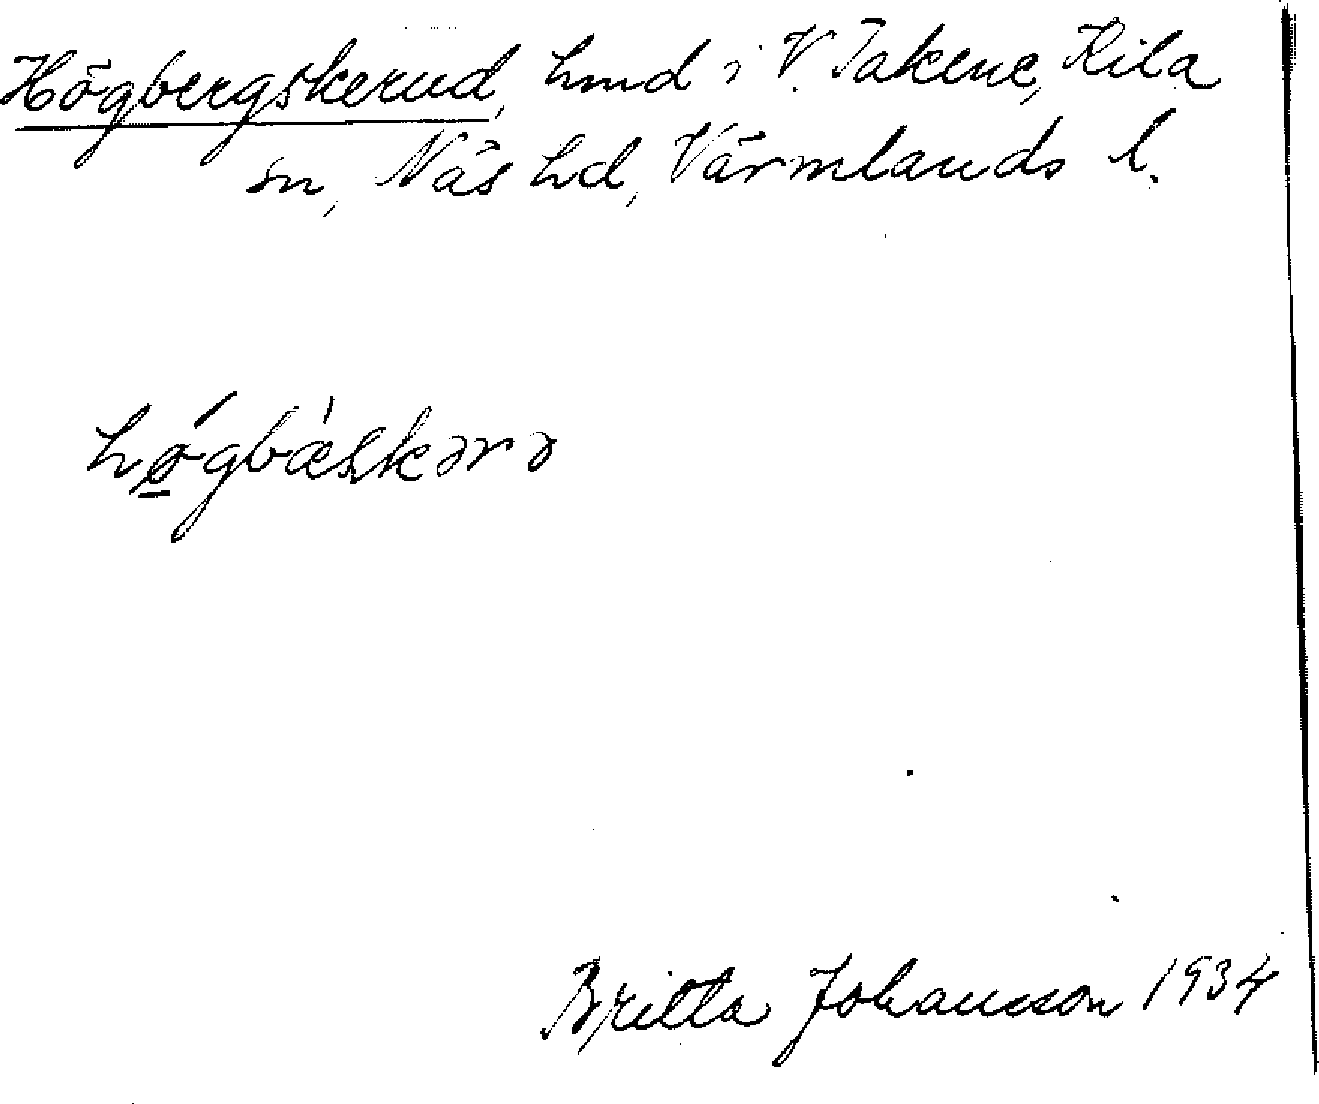 Högbergskerud, hmd i V. Takene, Kila
sn, Näs hd, Värmlands l.
hǿ̱gbæ̀skərə
Britta Johansson 1934